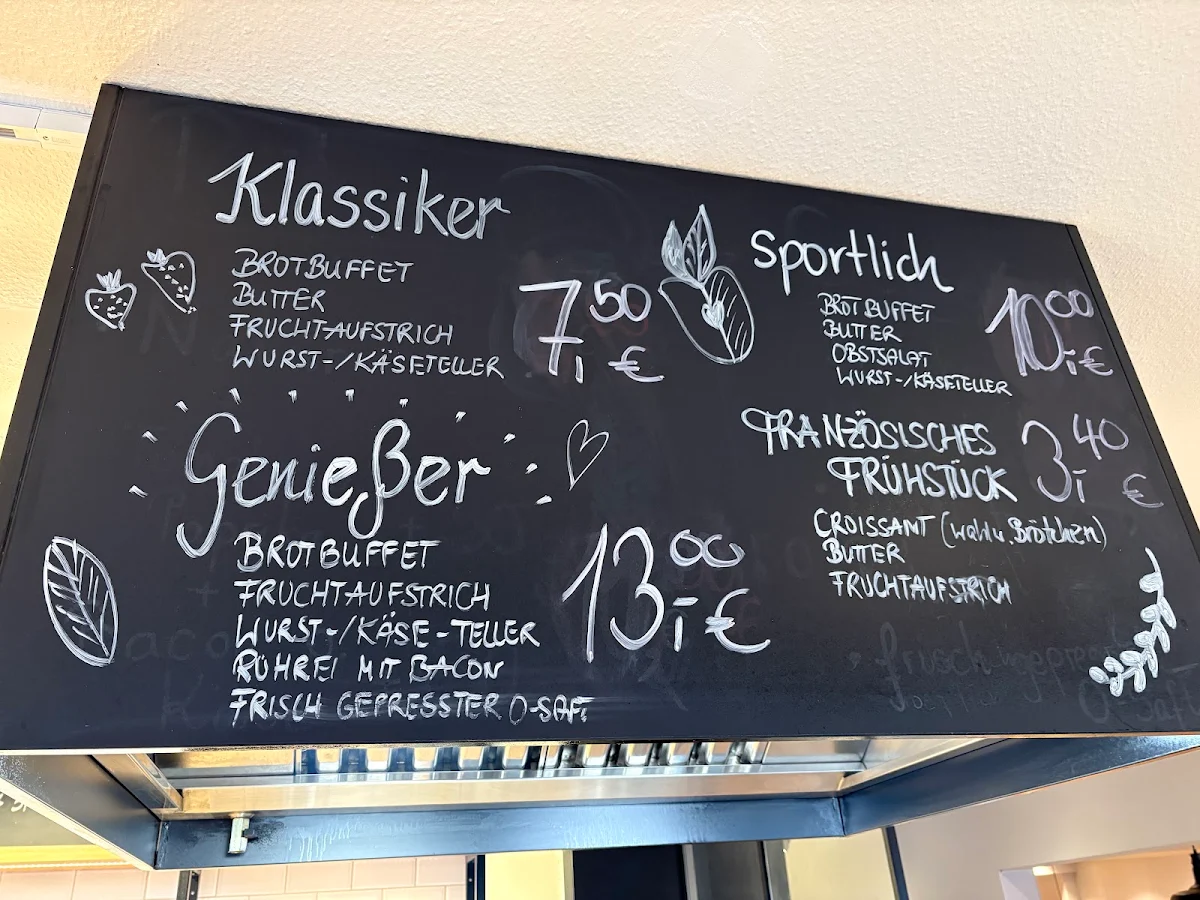 Klassiker
BROTBUFFET
BUTTER
FRUCHTAUFSTRICH
WURST-/KÄSETELLER
7,50 €
Genießer
BROTBUFFET
FRUCHTAUFSTRICH
WURST-/KÄSE-TELLER
RÜHREI MIT BACON
FRISCH GEPRESSTER O-SAFT
13,00 €
Sportlich
BROTBUFFET
BUTTER
OBSTSALAT
WURST-/KÄSETELLER
10,00 €
FRANZÖSISCHES
FRÜHSTÜCK
3,40 €
CROISSANT (wahlw. Brötchen)
BUTTER
FRUCHTAUFSTRICH